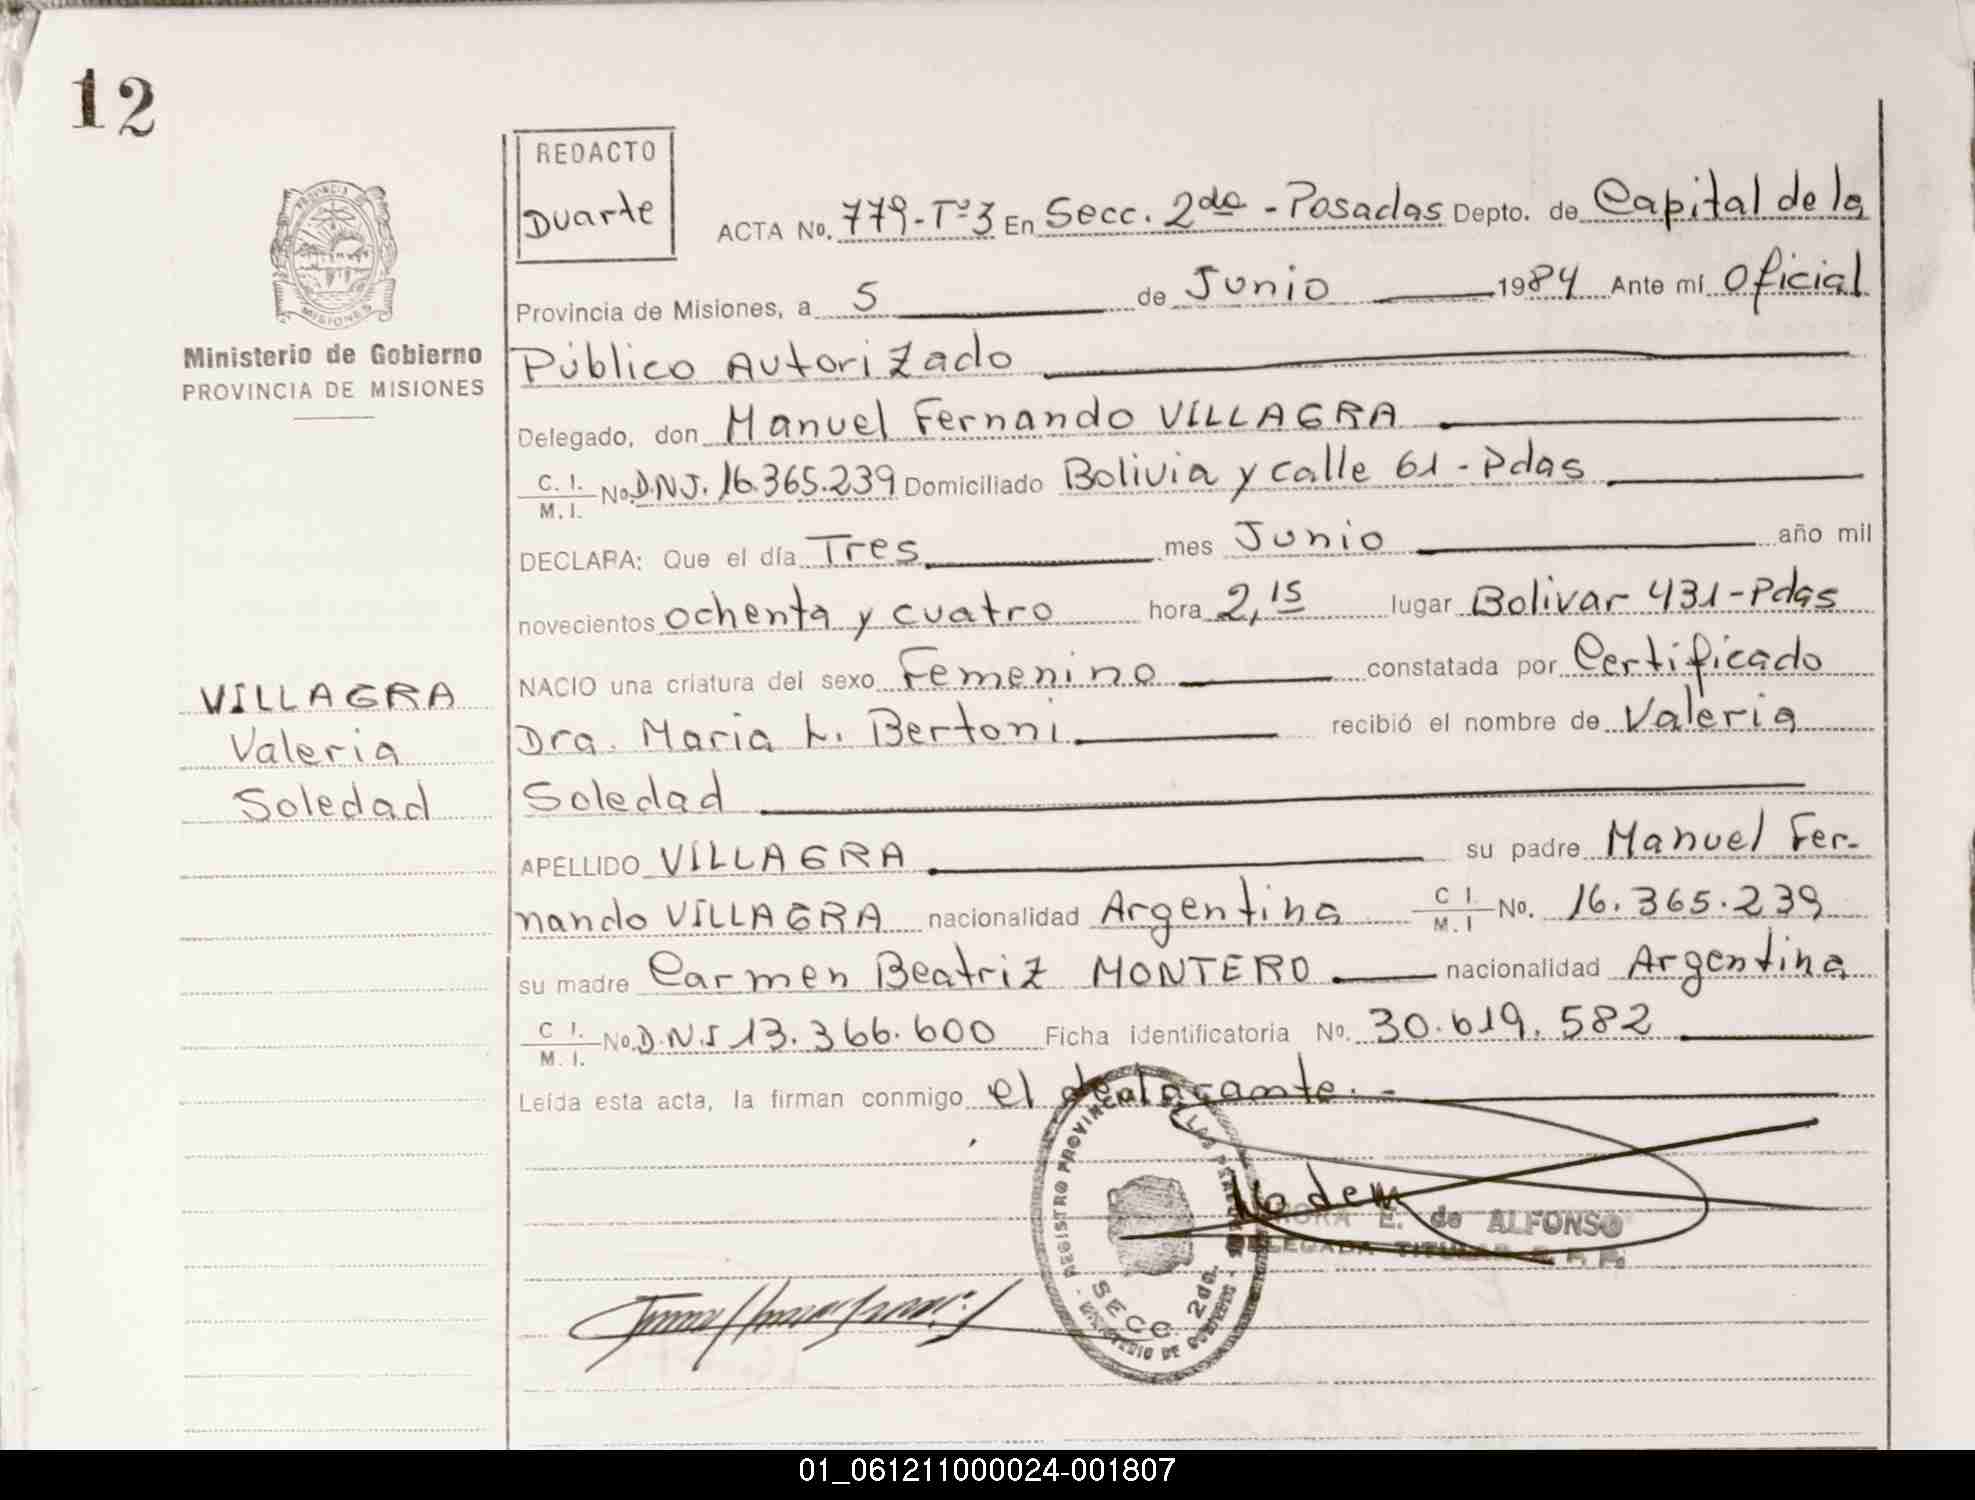 12
REDACTO
Duarte
ACTA No. 779-Tº3 En Secc. 2da - Posadas Depto. de Capital de la
Provincia de Misiones, a 5 de Junio 1984 Ante mí Oficial
Público Autorizado
Delegado, don Manuel Fernando VILLAGRA
C. I. / M. I. No. D.N.I. 16.365.239 Domiciliado Bolivia y calle 61 - Pdas
DECLARA: Que el día Tres mes Junio año mil
novecientos ochenta y cuatro hora 2,15 lugar Bolivar 431-Pdas
NACIO una criatura del sexo Femenino constatada por Certificado
Dra. Maria L. Bertoni recibió el nombre de Valeria
Soledad
APELLIDO VILLAGRA su padre Manuel Fer-
nando VILLAGRA nacionalidad Argentina C I. / M. I No. 16.365.239
su madre Carmen Beatriz MONTERO nacionalidad Argentina
C I. / M. I. No. D.N.I 13.366.600 Ficha identificatoria No. 30.619.582
Leída esta acta, la firman conmigo el declarante.-
PROVINCIA
MISIONES
Ministerio de Gobierno
PROVINCIA DE MISIONES
VILLAGRA
Valeria
Soledad
REGISTRO PROVINCIAL DE LAS PERSONAS
SECC. 2da.
MINISTERIO DE GOBIERNO
E. de ALFONSO
DELEGADA TITULAR R. P. P.
01_061211000024-001807